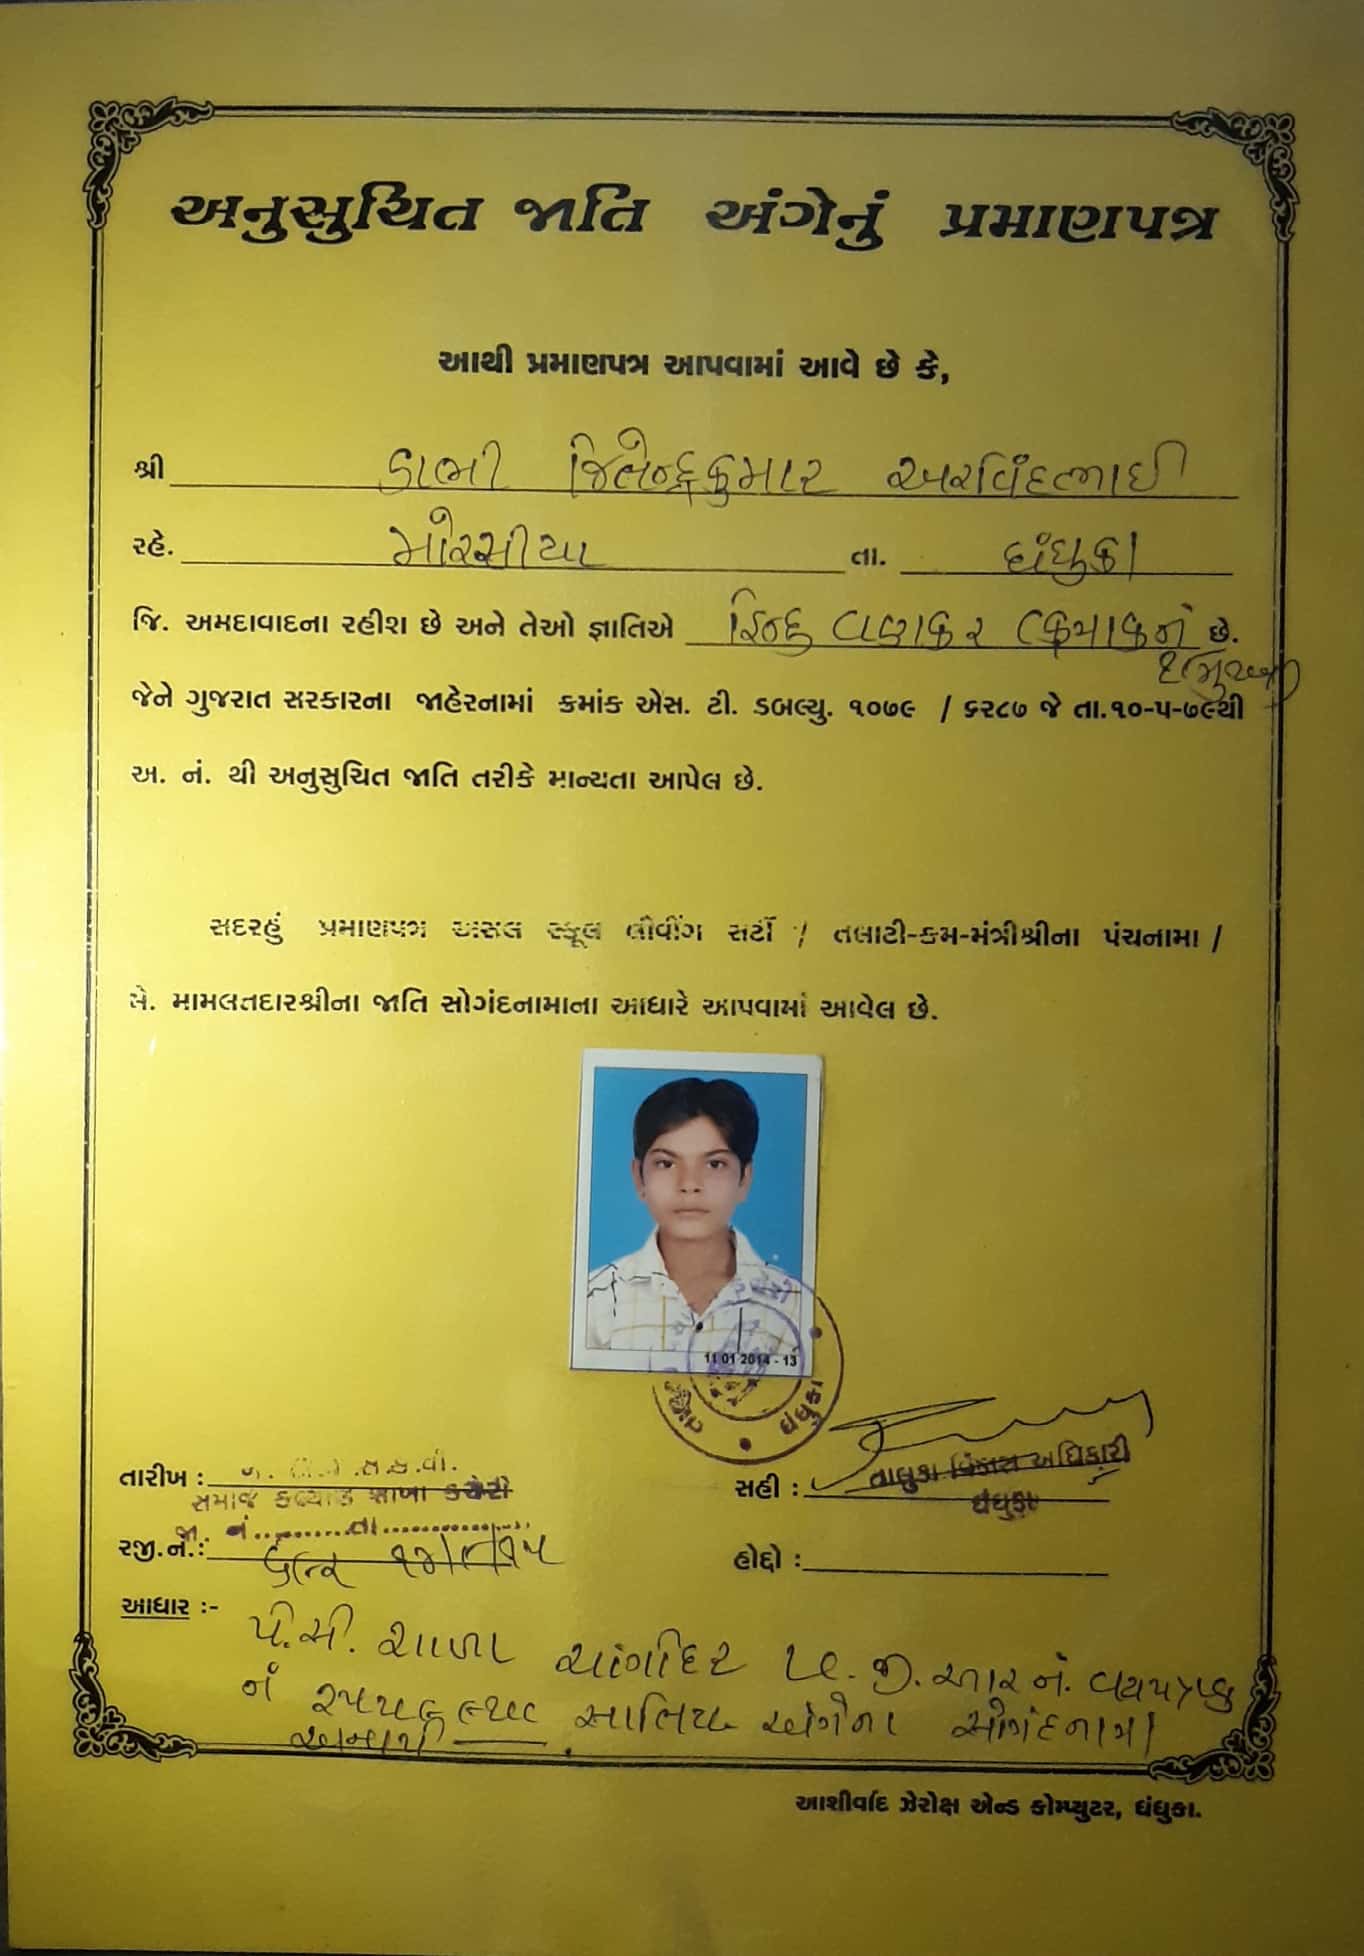 અનુસુચિત જાતિ અંગેનું પ્રમાણપત્ર
આથી પ્રમાણપત્ર આપવામાં આવે છે કે,
શ્રી ડાભી જિતેન્દ્રકુમાર અરવિંદભાઈ
રહે. મોરસીયા તા. ધંધુકા
જિ. અમદાવાદના રહીશ છે અને તેઓ જ્ઞાતિએ હિન્દુ વણકર છે.
જેને ગુજરાત સરકારના જાહેરનામાં ક્રમાંક એસ. ટી. ડબલ્યુ. ૧૦૭૯ / ૬૨૮૭ જે તા.૧૦-૫-૭૯થી
અ. નં. થી અનુસુચિત જાતિ તરીકે માન્યતા આપેલ છે.
સદરહું પ્રમાણપત્ર અસલ સ્કૂલ લીવીંગ સર્ટી / તલાટી-કમ-મંત્રીશ્રીના પંચનામા /
મે. મામલતદારશ્રીના જાતિ સોગંદનામાના આધારે આપવામાં આવેલ છે.
11 01 2014 - 13
ધંધુકા
તારીખ :
સમાજ કલ્યાણ શાખા કચેરી
જા. નં. તા
રજી.નં. :
સહી : તાલુકા વિકાસ અધિકારી
ધંધુકા
હોદ્દો :
આધાર :-
પી.સી. શાળા
નં અંગેના સોગંદનામા
આશીર્વાદ ઝેરોક્ષ એન્ડ કોમ્પ્યુટર, ધંધુકા.